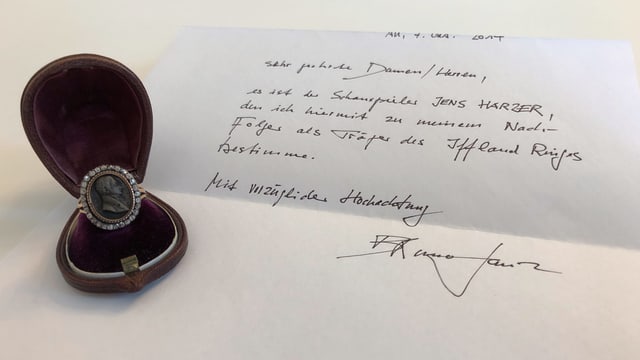 Au, 7. Okt. 2014
Sehr geehrte Damen/Herren,
es ist der Schauspieler JENS HARZER,
den ich hiermit zu meinem Nach-
Folger als Träger des Iffland Ringes
Bestimme.
Mit vorzüglicher Hochachtung
Bruno Ganz